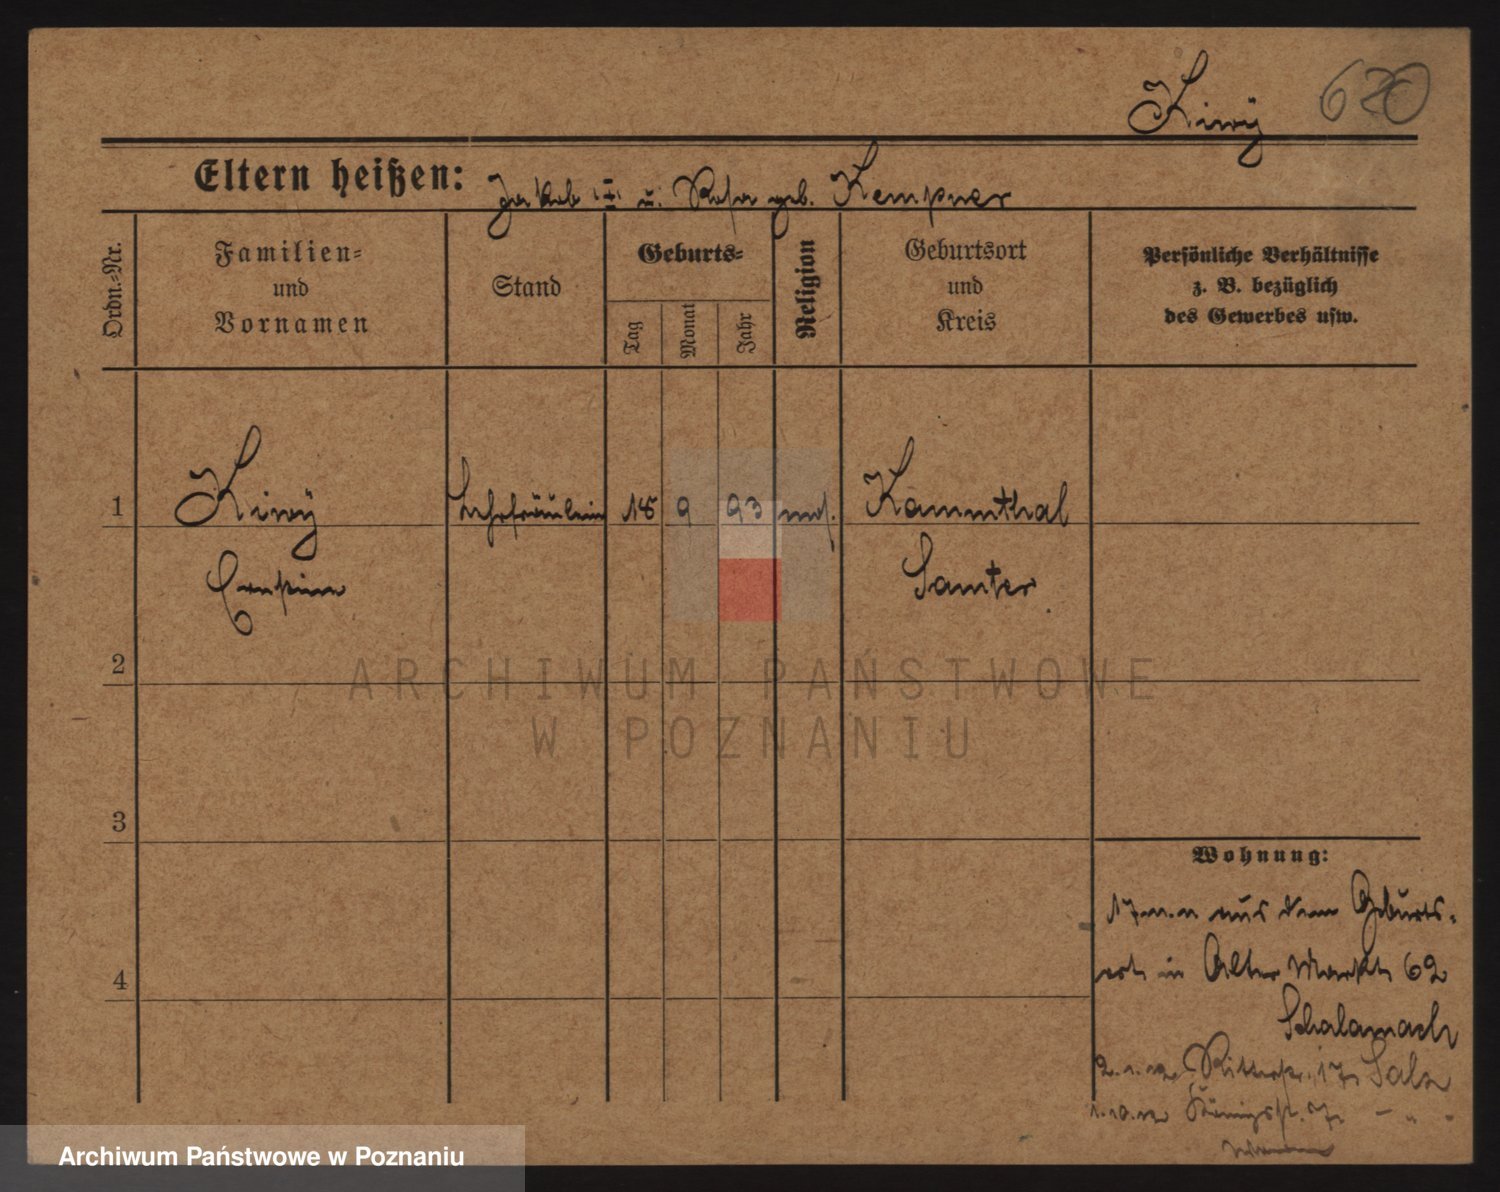 Kiwy 670
Eltern heißen: Jakob III u. Rosa geb. Kempner
Ordn.-Nr.
Familien- und Vornamen
Stand
Geburts-
Tag
Monat
Jahr
Religion
Geburtsort und Kreis
Persönliche Verhältnisse z. B. bezüglich des Gewerbes usw.
1 Kiwy Lehrfräulein 18 9 93 mos. Kammthal
Samter
2
3
4
Wohnung:
aus dem Geburts-
ort in Alter Markt 62
Schalamach
Ritterstr. 17 Salz
Königstr.
ARCHIWUM PAŃSTWOWE
W POZNANIU
Archiwum Państwowe w Poznaniu